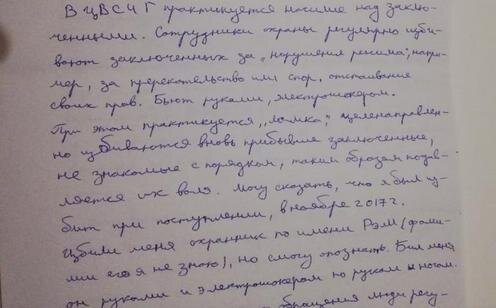 В ЦВСИГ практикуется насилие над заклю-
ченными. Сотрудники охраны регулярно изби-
вают заключенных за „нарушения режима", напри-
мер, за пререкательство или спор, отстаивание
своих прав. Бьют руками, электрошокером.
При этом практикуется „ломка": целенаправлен-
но избиваются вновь прибывшие заключенные,
не знакомые с порядком, таким образом подав-
ляется их воля. Могу сказать, что я был из-
бит при поступлении, в ноябре 2017 г.
Избили меня охранник по имени Рэм (фами-
лии его я не знаю), но смогу опознать. Бил меня
он руками и электрошокером по рукам и ногам.
обращения люди регу-